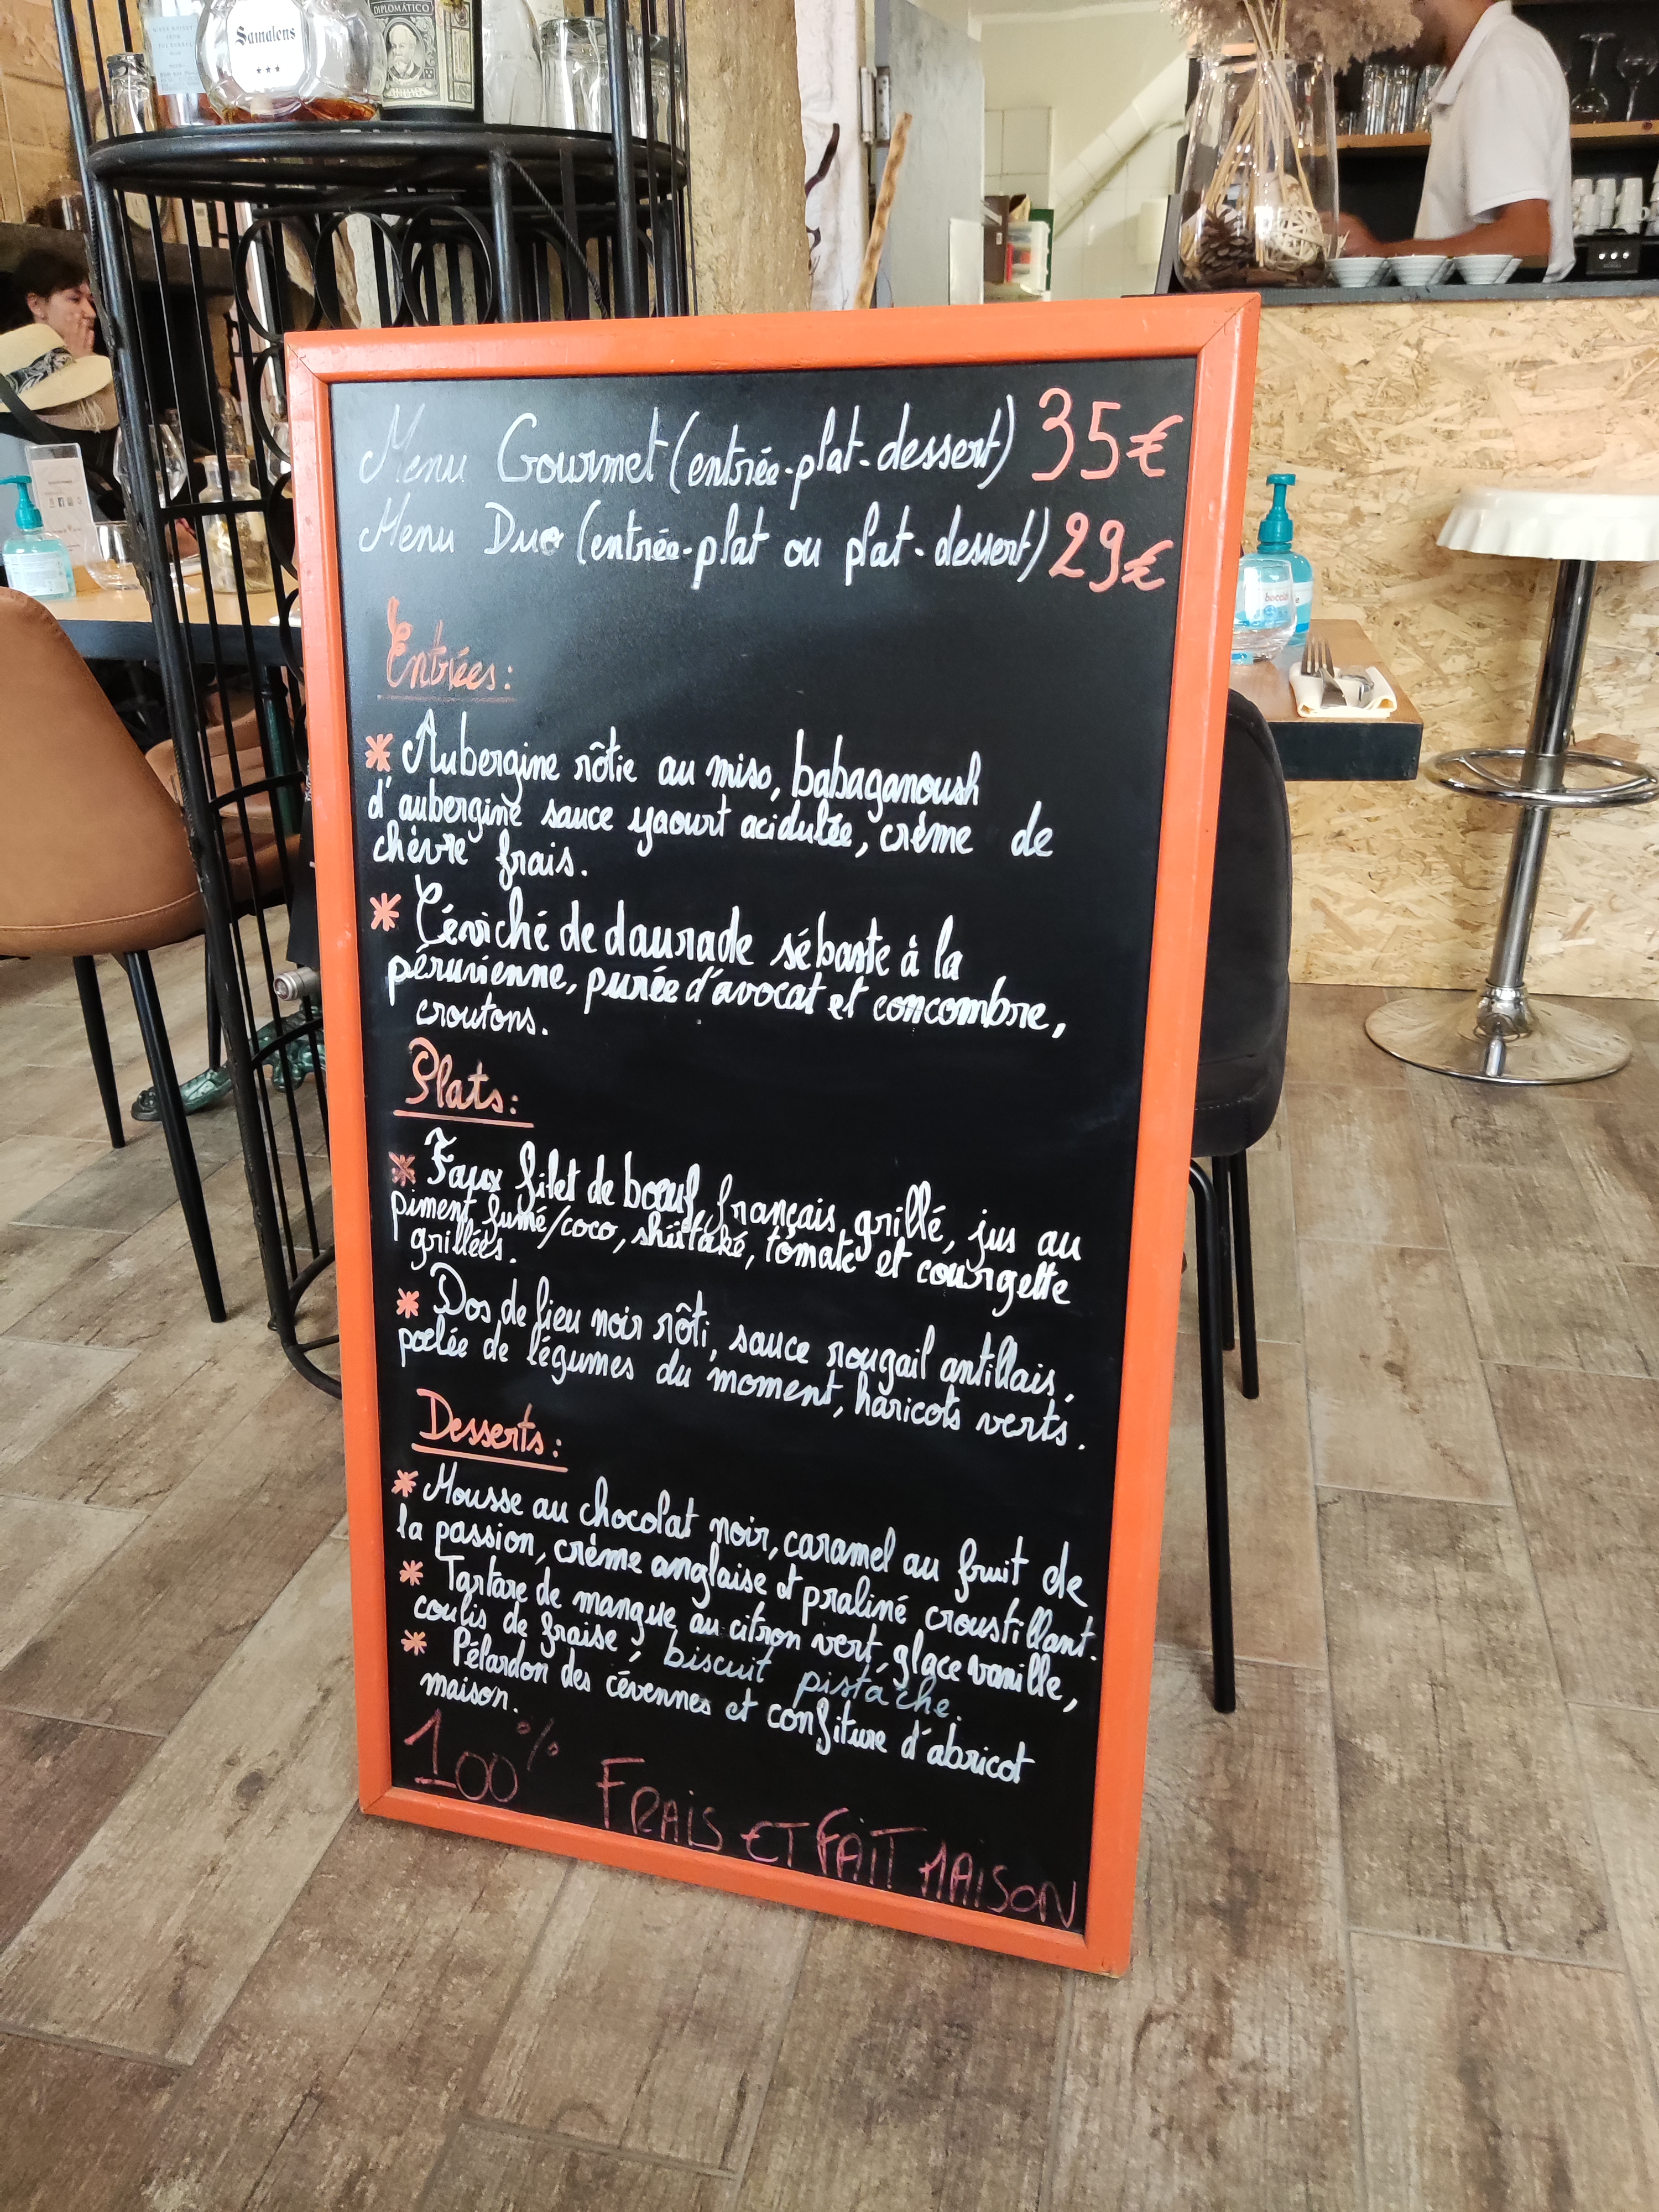 Samalens
DIPLOMÁTICO
Menu Gourmet (entrée-plat-dessert) 35€
Menu Duo (entrée-plat ou plat-dessert) 29€
Entrées:
* Aubergine rôtie au miso, babaganoush
d'aubergine sauce yaourt acidulée, crème de
chèvre frais.
* Céviché de daurade sébaste à la
péruvienne, purée d'avocat et concombre,
croutons.
Plats:
* Faux filet de bœuf français grillé, jus au
piment fumé/coco, shiitaké, tomate et courgette
grillées.
* Dos de lieu noir rôti, sauce rougail antillais,
poêlée de légumes du moment, haricots verts.
Desserts:
* Mousse au chocolat noir, caramel au fruit de
la passion, crème anglaise et praliné croustillant.
* Tartare de mangue au citron vert, glace vanille,
coulis de fraise, biscuit pistache.
* Pélardon des cévennes et confiture d'abricot
maison.
100% FRAIS ET FAIT MAISON